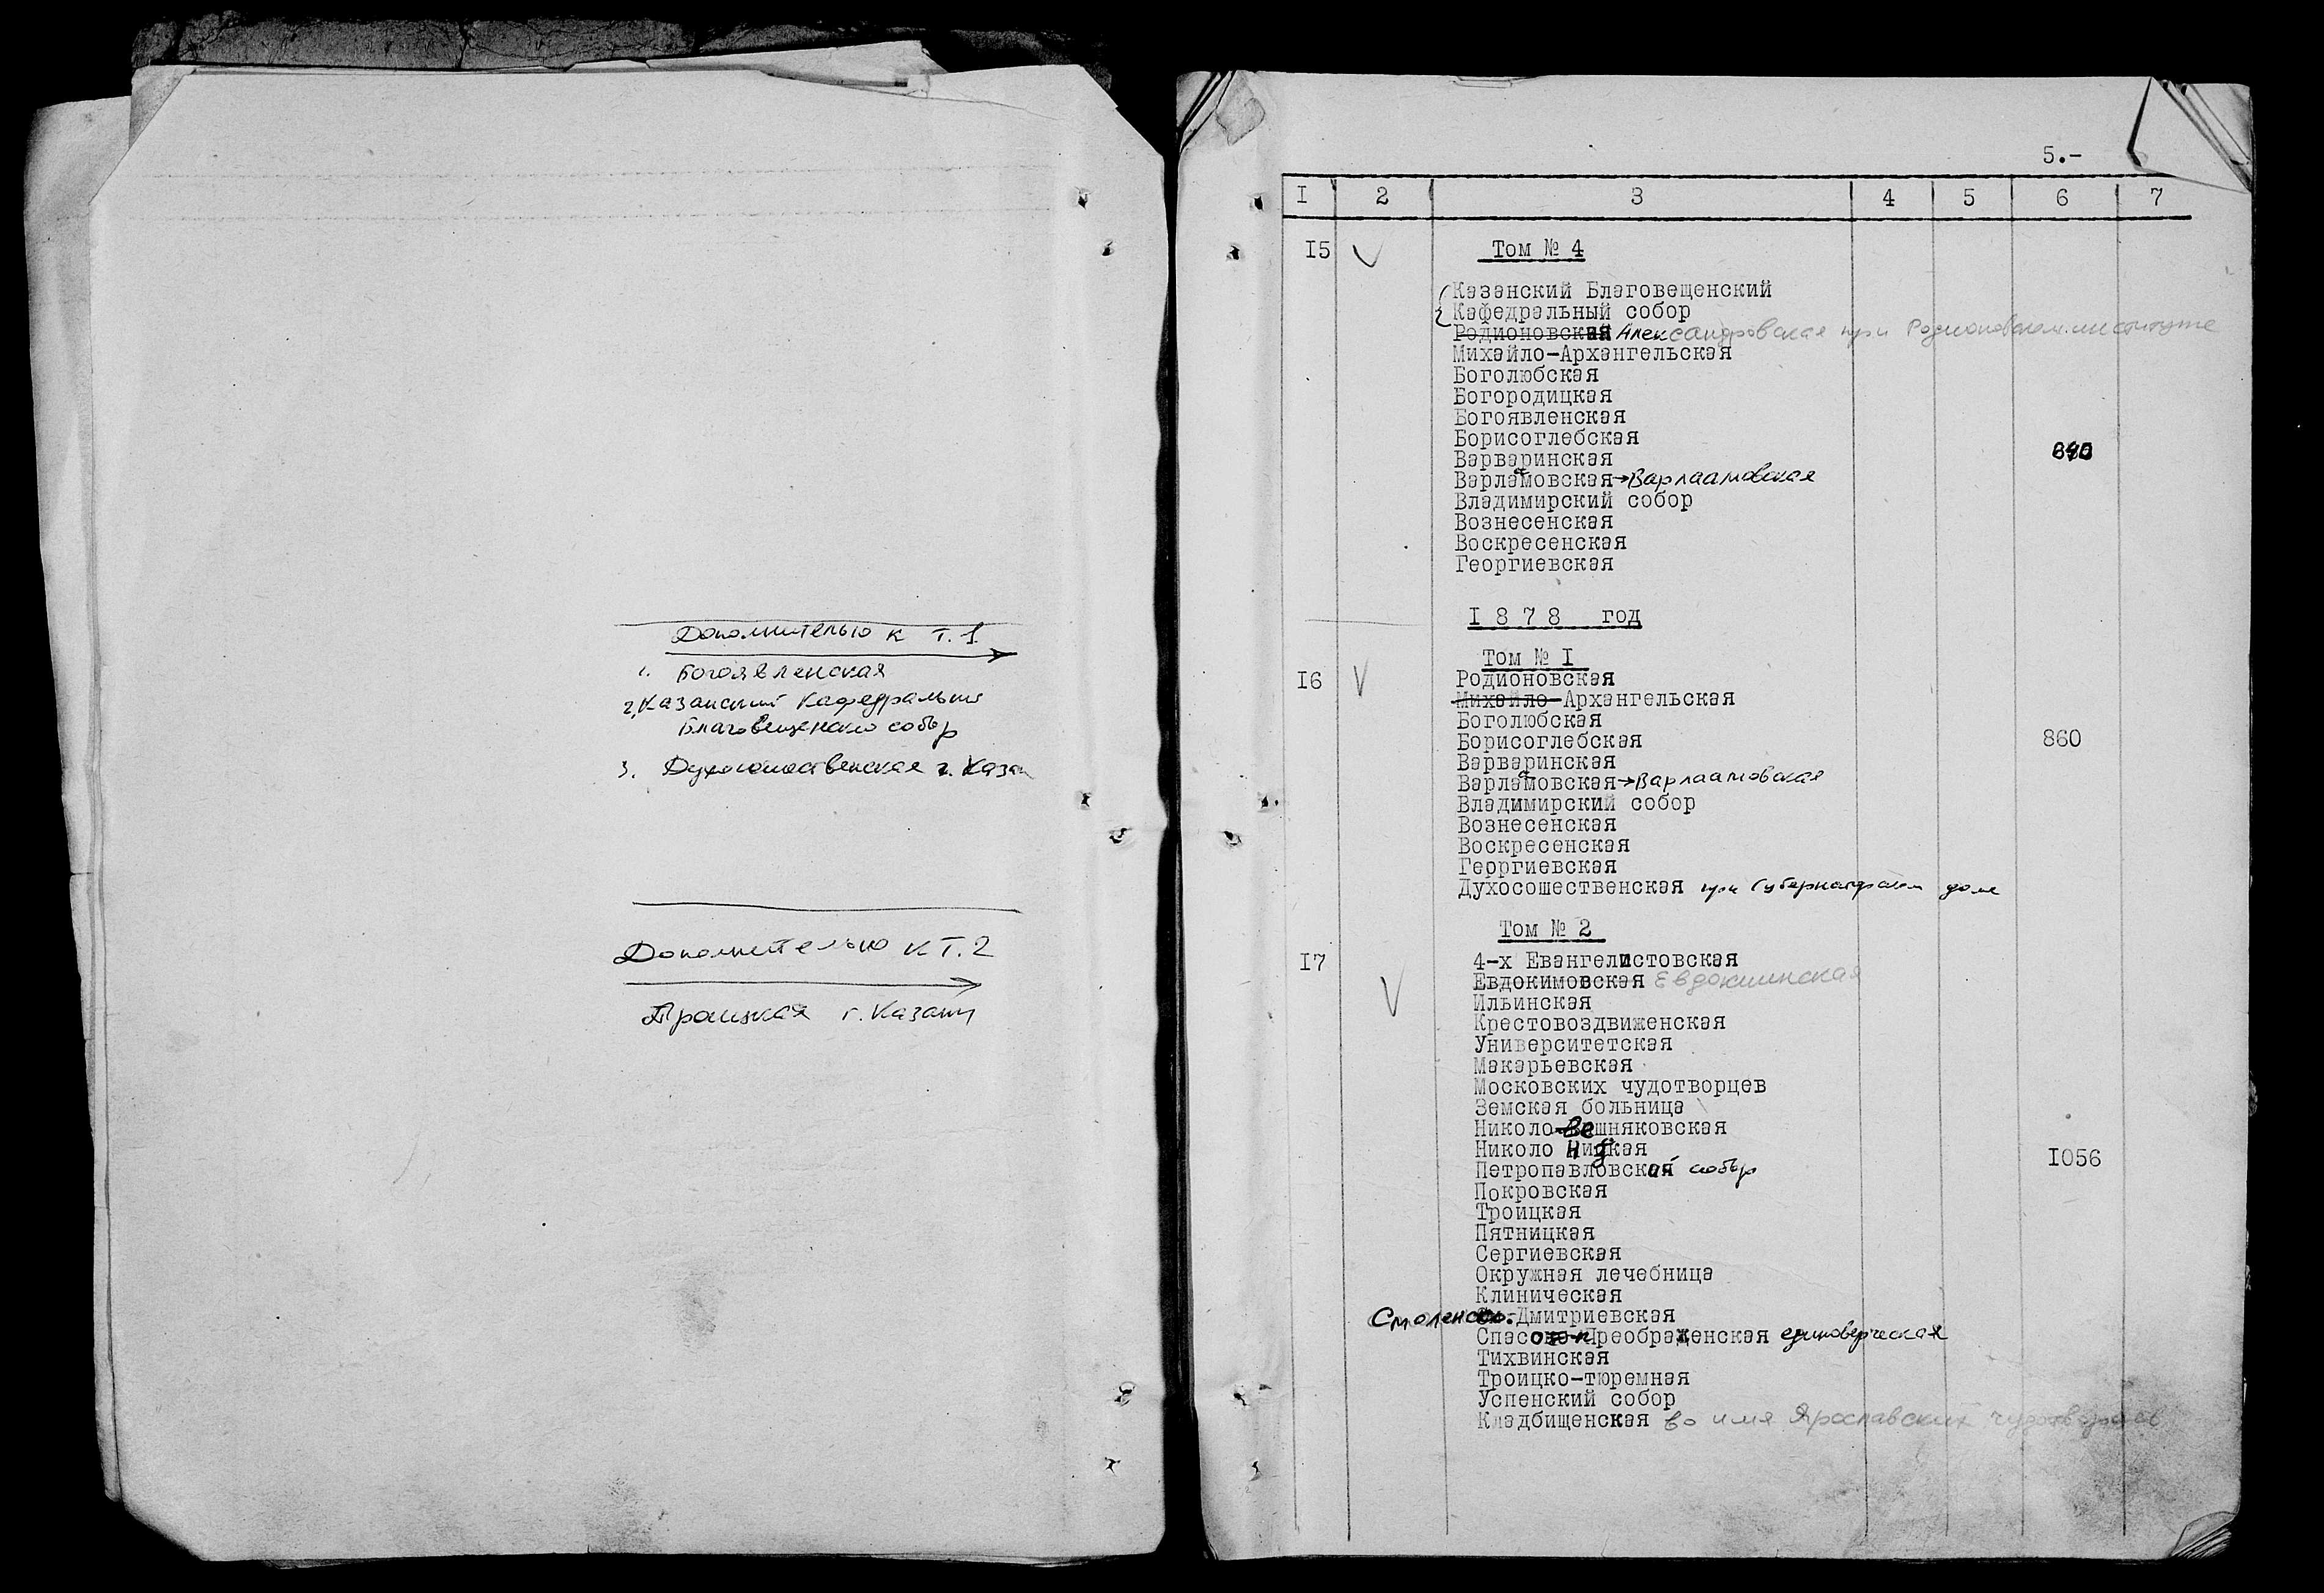 Дополнительно к т. 1
1. Богоявленская
2. Казанский Кафедральный
Благовещенский собор
3. Духосошественская г. Казан
Дополнительно к Т. 2
Троицкая г. Казани
5.-
I 2 3 4 5 6 7
I5 V Том № 4
Казанский Благовещенский
Кафедральный собор
Родионовская Александровская при Родионовском институте
Михайло-Архангельская
Боголюбская
Богородицкая
Богоявленская
Борисоглебская
Варваринская
Варламовская→Варлаамовская
Владимирский собор
Вознесенская
Воскресенская
Георгиевская
I 8 7 8 год
Том № I
I6 V Родионовская
Михайло-Архангельская
Боголюбская
Борисоглебская 860
Варваринская
Варламовская→Варлаамовская
Владимирский собор
Вознесенская
Воскресенская
Георгиевская
Духосошественская при Губернаторском доме
Том № 2
I7 V 4-х Евангелистовская
Евдокимовская Евдокиинская
Ильинская
Крестовоздвиженская
Университетская
Макарьевская
Московских чудотворцев
Земская больница
Николо-Вешняковская
Николо Низкая
Петропавловский собор I056
Покровская
Троицкая
Пятницкая
Сергиевская
Окружная лечебница
Клиническая
Смоленско-Дмитриевская
Спасо-Преображенская единоверческая
Тихвинская
Троицко-тюремная
Успенский собор
Кладбищенская во имя Ярославских чудотворцев